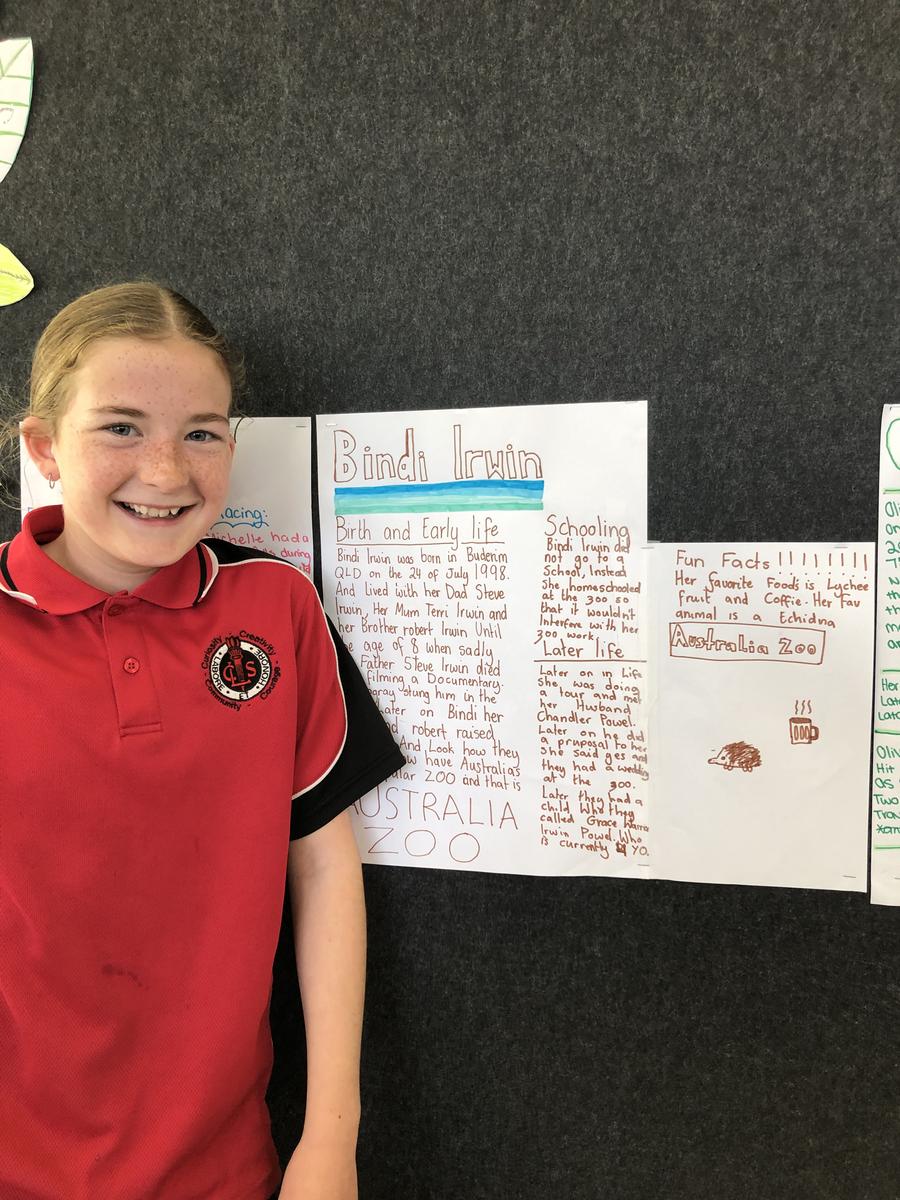 acing:
Michelle had a
during
Bindi Irwin
Birth and Early life
Bindi Irwin was born in Buderim
QLD on the 24 of July 1998.
And Lived with her Dad Steve
Irwin, Her Mum Terri Irwin and
her Brother robert Irwin Until
age of 8 when sadly
Father Steve Irwin died
filming a Documentary.
stung him in the
Later on Bindi her
robert raised
And Look how they
have Australia's
ZOO and that is
AUSTRALIA
ZOO
Schooling
Bindi Irwin did
not go to a
School, Instead
She homeschooled
at the zoo so
that it wouldn't
Interfere with her
zoo work.
Later life
Later on in Life
She was doing
a tour and met
her Husband
Chandler Powel.
Later on he did
a pruposal to her
She said yes and
they had a wedding
at the zoo.
Later they had a
child Who they
called Grace Warra
Irwin Powel. Who
is currently YO.
Fun Facts !!!!!!!!
Her favorite Foods is Lychee
fruit and Coffie. Her Fav
animal is a Echidna
Australia Zoo
Curiosity Creativity
Community Courage
LABORE ET HONORE
Her
Late
Late
Hit
as
Two